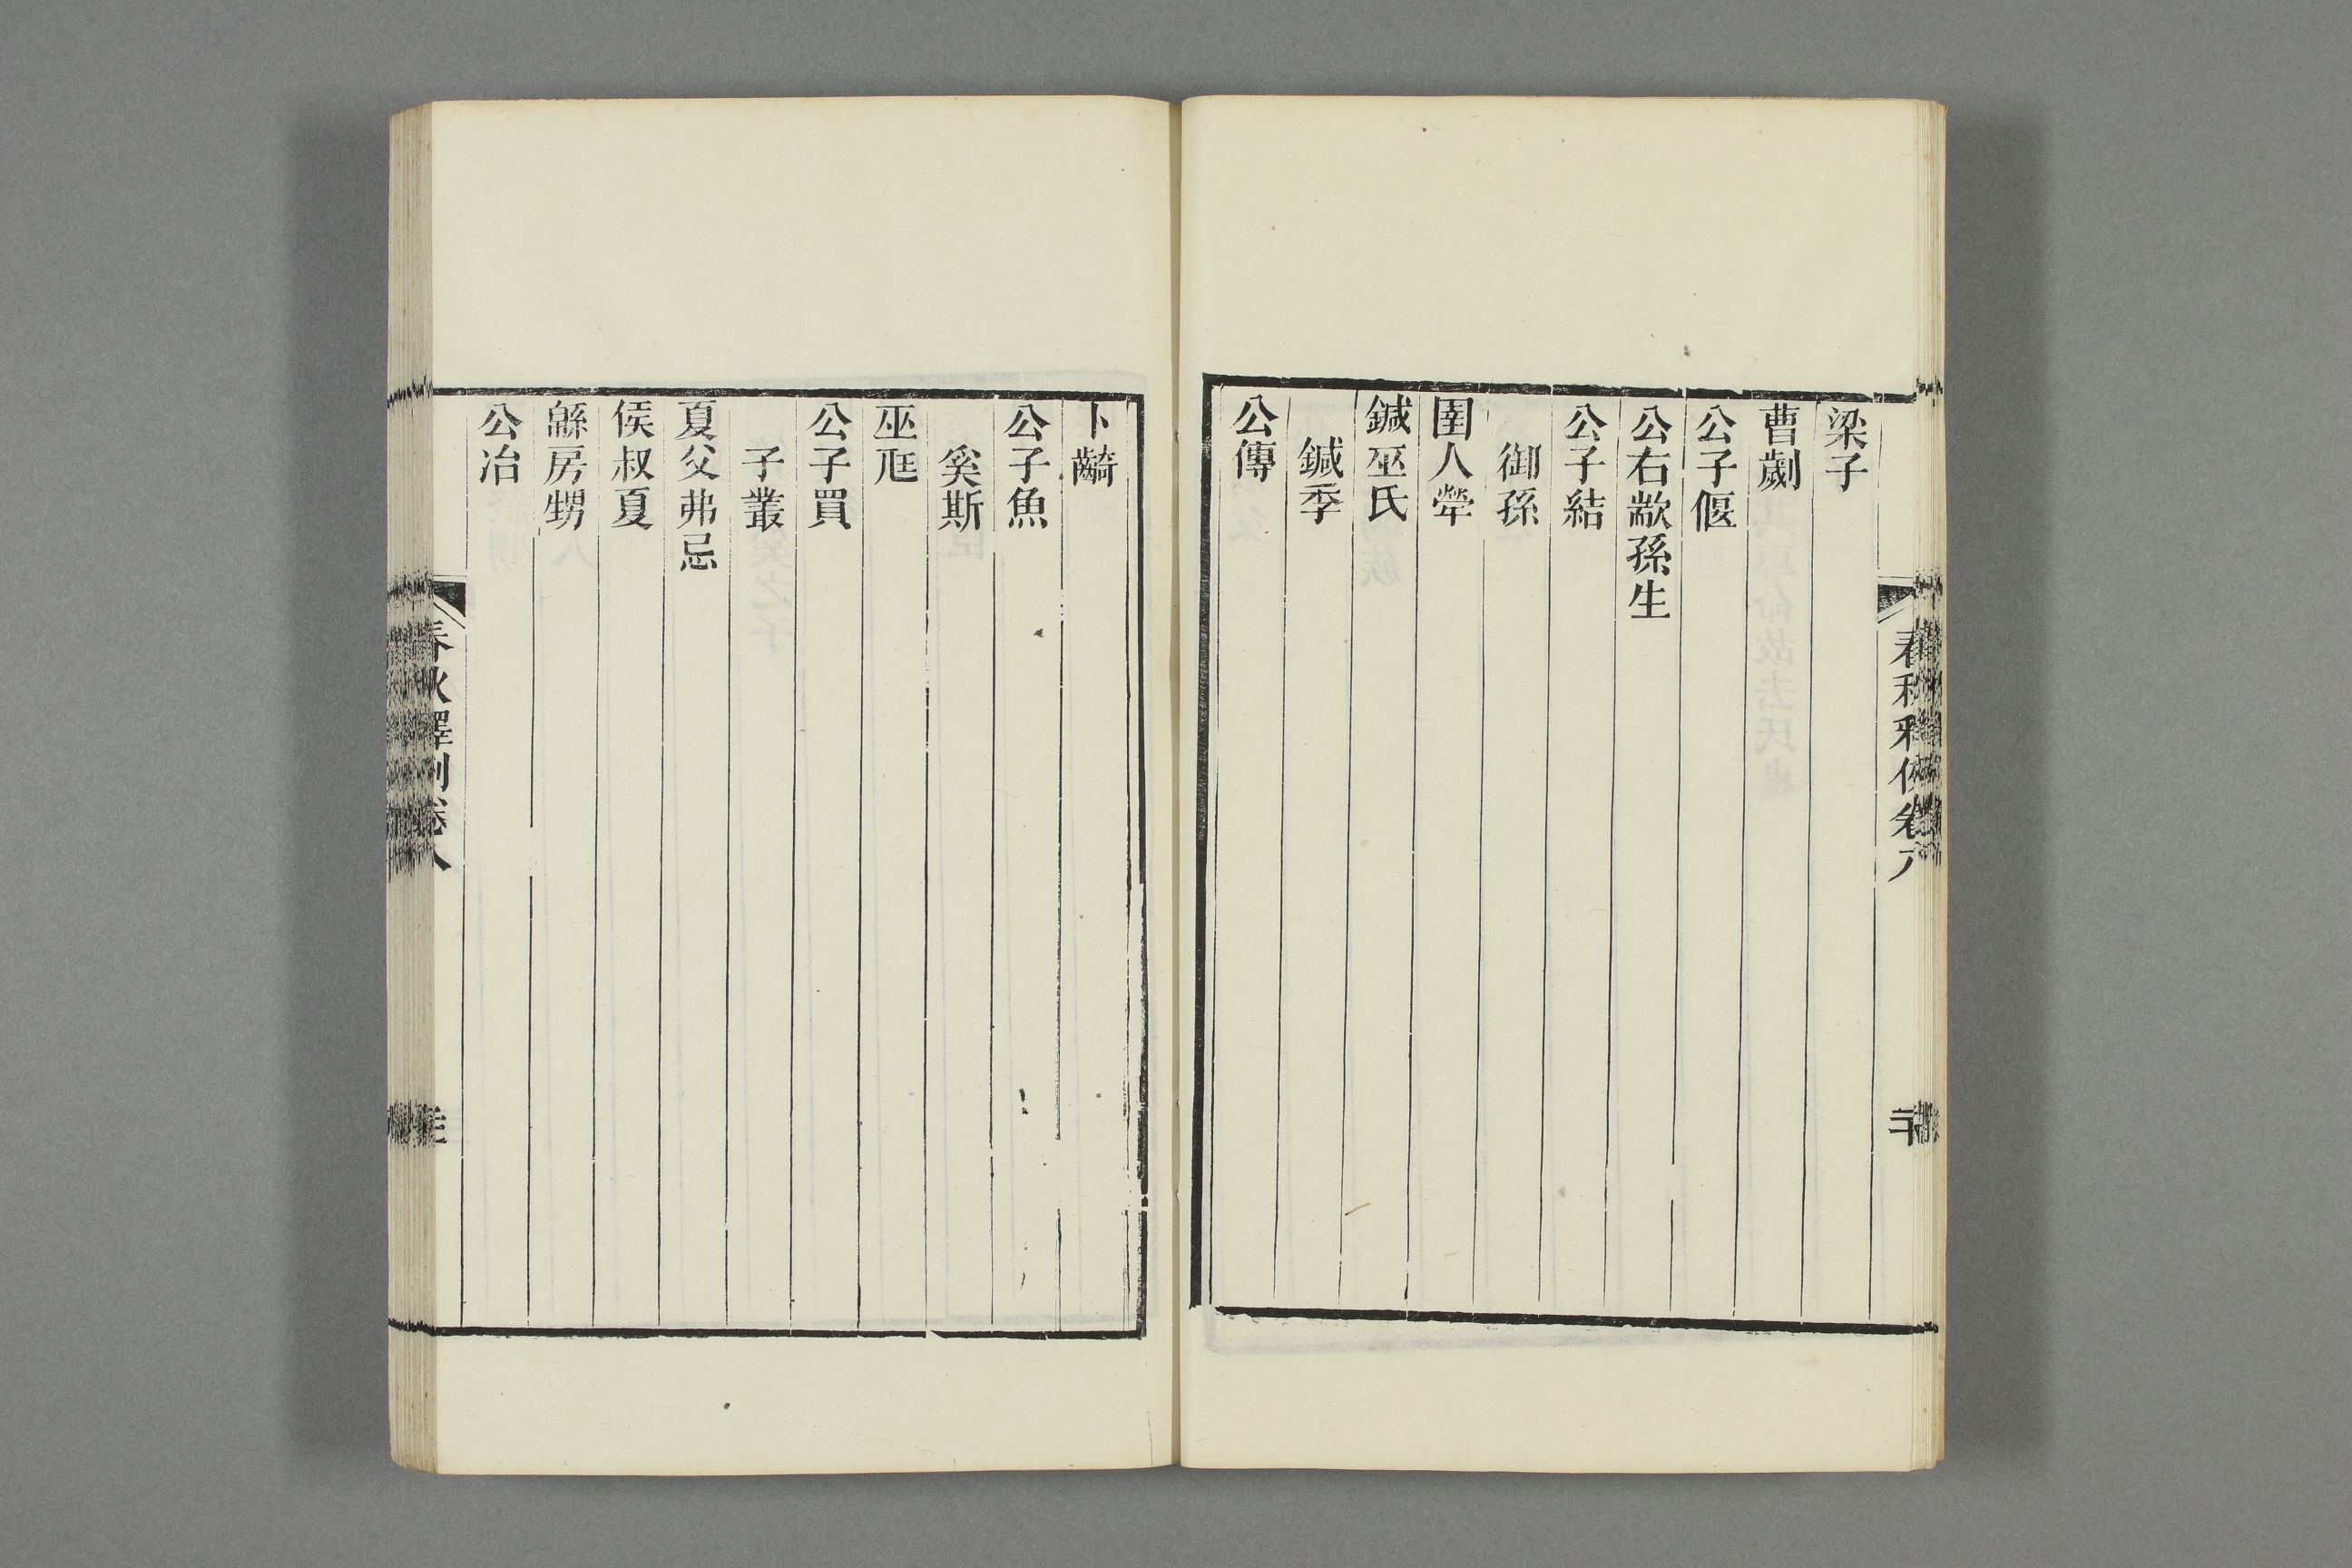 梁子
曹劌
公子偃
公右歂孫生
公子結
御孫
圉人犖
鍼巫氏
鍼季
公傅
卜齮
公子魚
奚斯
巫尫
公子買
子叢
夏父弗忌
侯叔夏
緜房甥
公冶
春秋釋例卷八